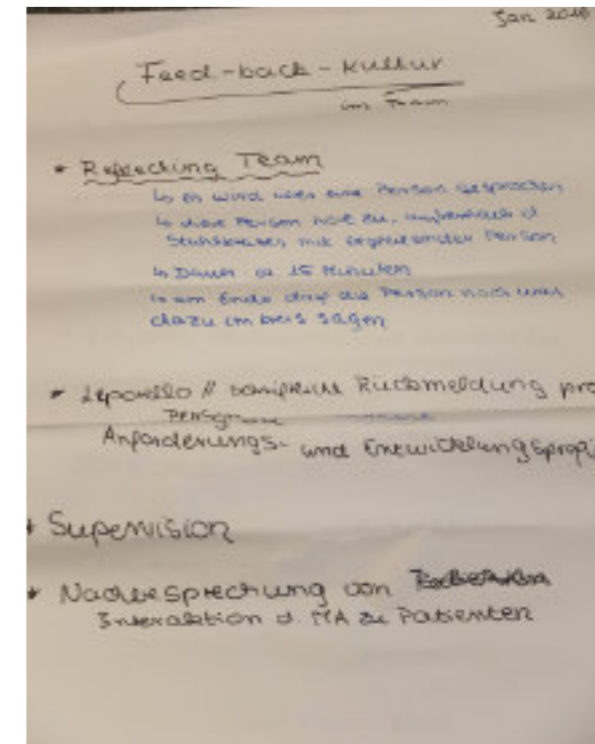 Jan 2018
Feed-back-Kultur
im Team
* Reflecting Team
↳ es wird über eine Person gesprochen
↳ diese Person hört zu, außerhalb d.
Stuhlkreises mit Person
↳ Dauer ca. 15 Minuten
↳ am Ende darf die Person noch was
dazu im Kreis sagen
* Leporello // schriftliche Rückmeldung pro
Person
Anforderungs- und Entwicklungsprofi
* Supervision
* Nachbesprechung von
Interaktion d. MA zu Patienten